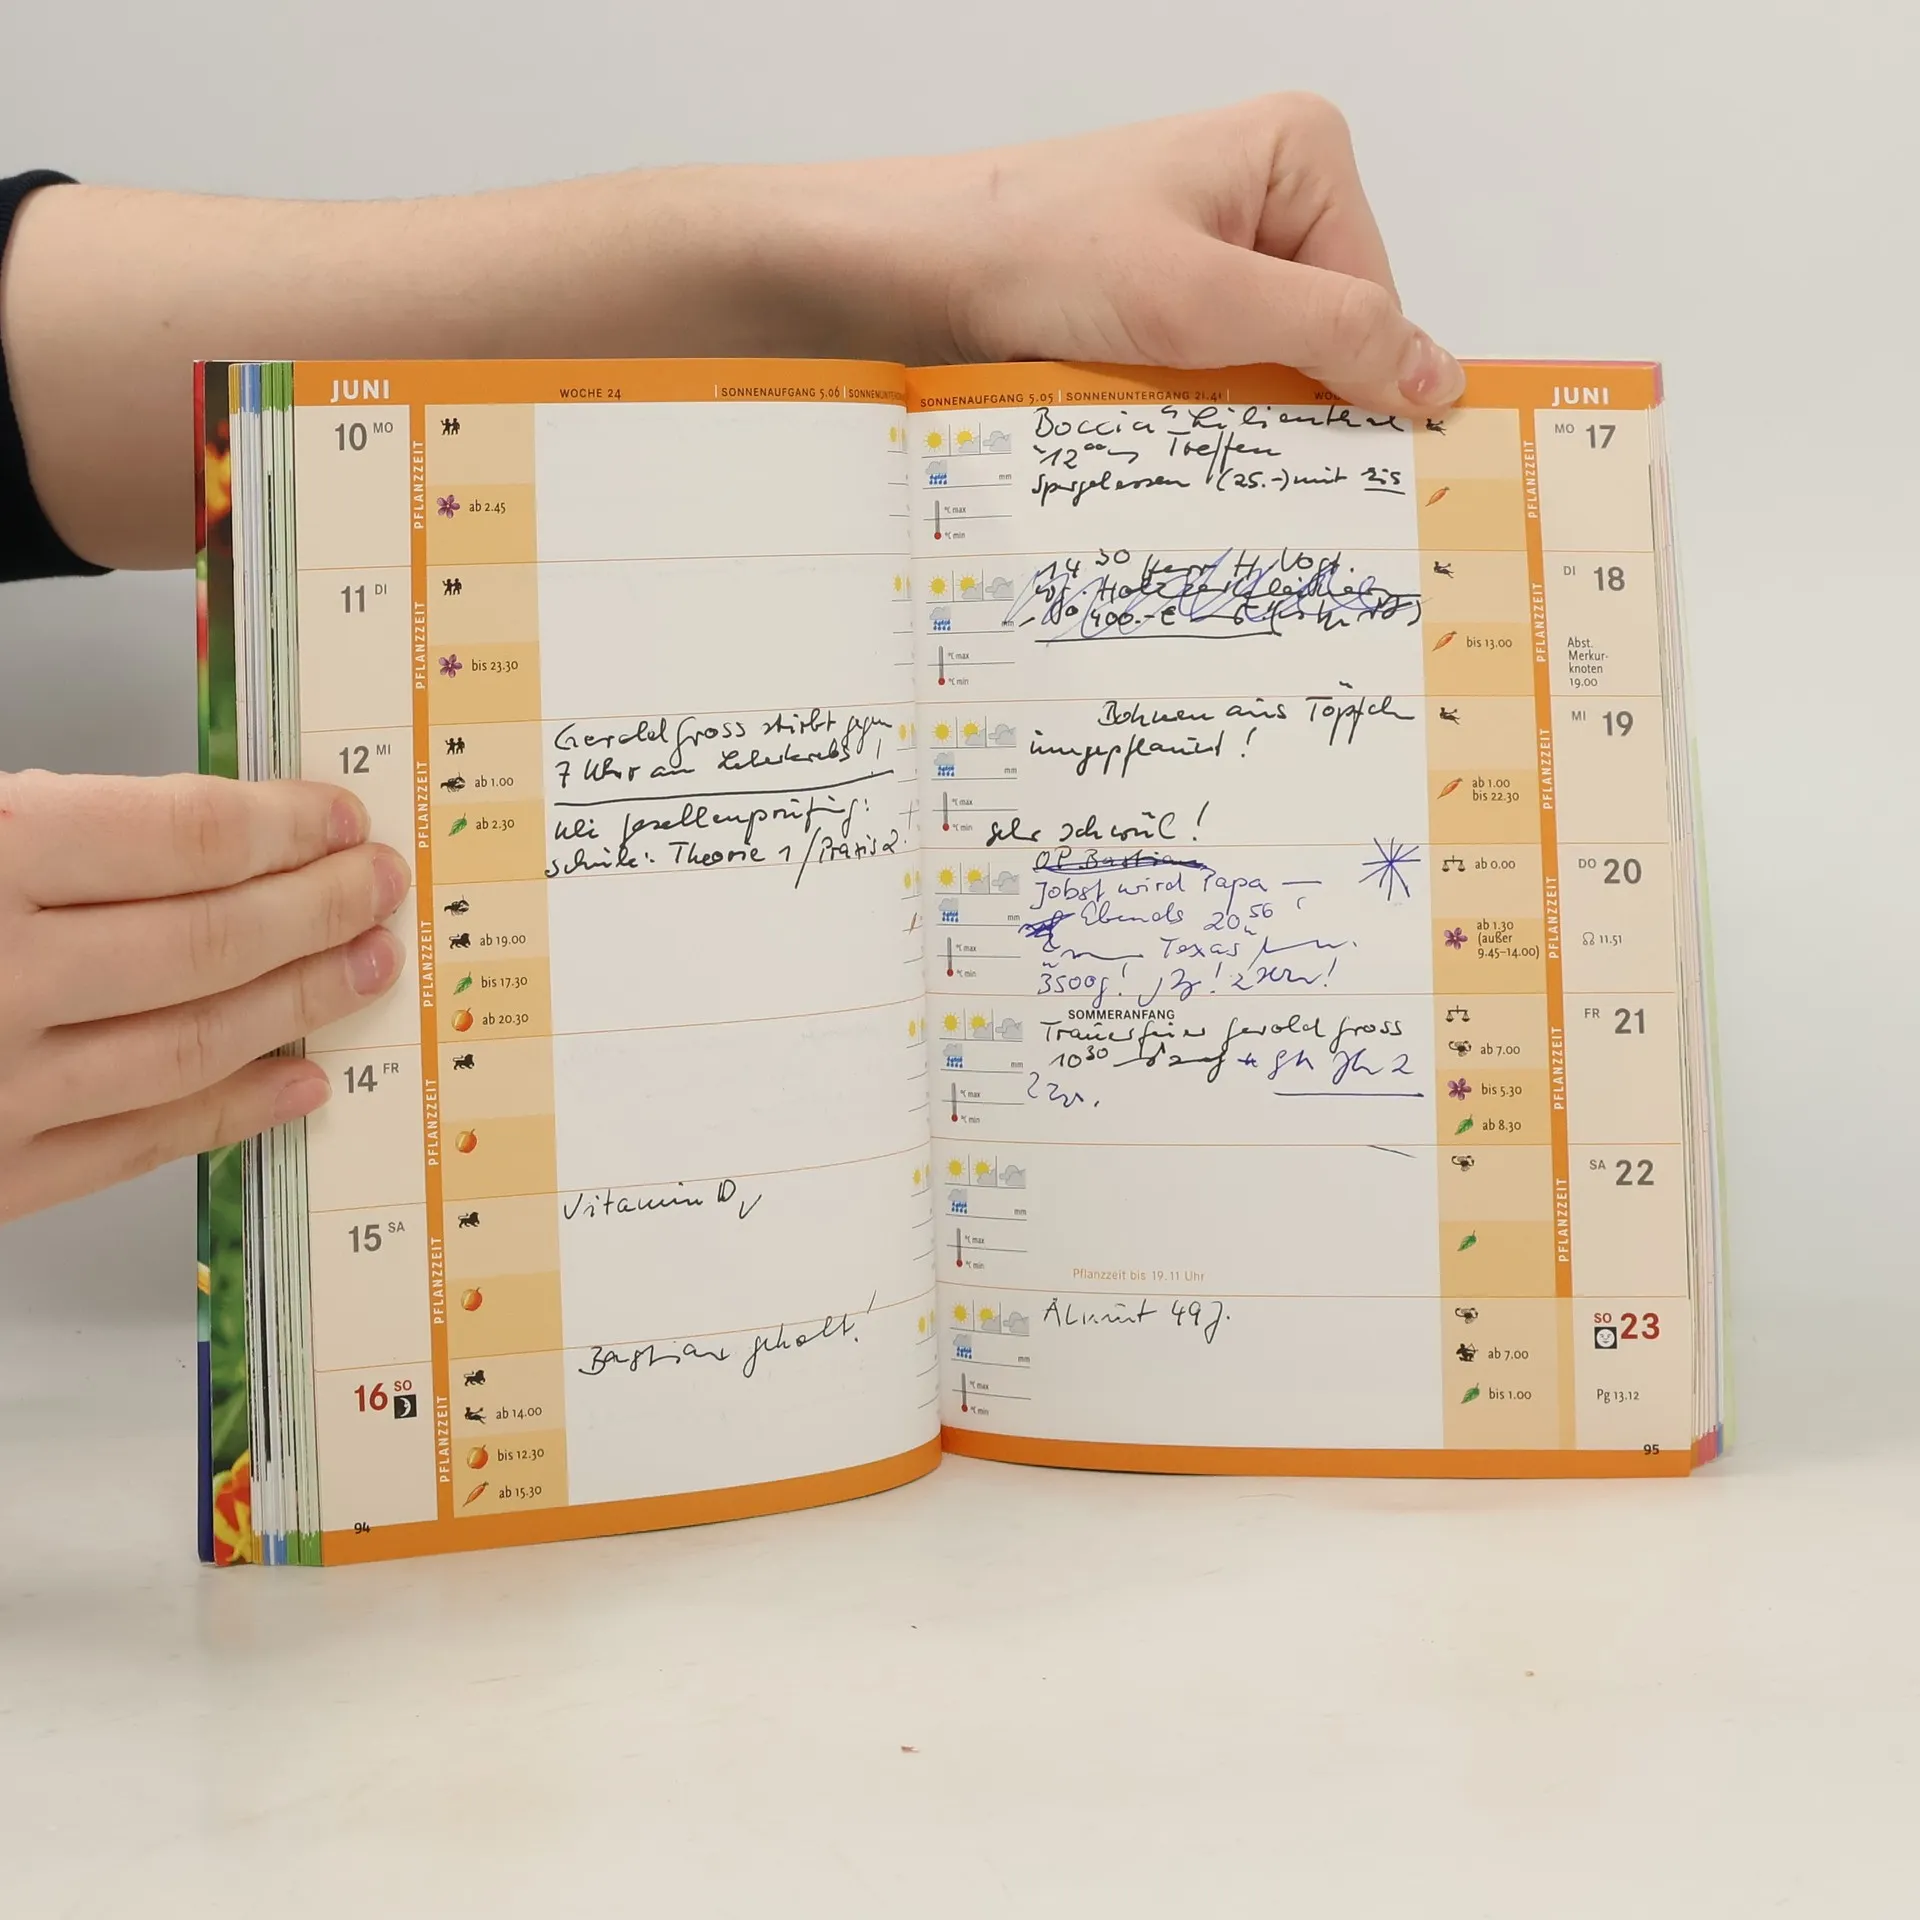 JUNI
WOCHE 24
SONNENAUFGANG 5.06
10 MO
PFLANZZEIT
ab 2.45
11 DI
PFLANZZEIT
bis 23.30
12 MI
PFLANZZEIT
ab 1.00
ab 2.30
Gerold Gross stirbt gegen
7 Uhr an Leberkrebs!
Gesellenprüfung:
Schule: Theorie 1/Praxis 2
PFLANZZEIT
ab 19.00
bis 17.30
ab 20.30
14 FR
PFLANZZEIT
15 SA
PFLANZZEIT
Vitamin D
16 SO
PFLANZZEIT
ab 14.00
bis 12.30
ab 15.30
Bastian geholt!
94
SONNENAUFGANG 5.05
SONNENUNTERGANG 21.41
JUNI
Boccia Lilienthal
12 00 Treffen
Spargelessen (25.-) mit Eis
mm
°C max
°C min
PFLANZZEIT
MO 17
14 30 Herr H. Vogt
400.-€
mm
°C max
°C min
bis 13.00
PFLANZZEIT
DI 18
Abst.
Merkur-
knoten
19.00
Bohnen aus Töpfchen
umgepflanzt!
sehr schwül!
mm
°C max
°C min
ab 1.00
bis 22.30
PFLANZZEIT
MI 19
OP Bastian
Jobst wird Papa
Ebends 20 56
Texas
3500g!
mm
°C max
°C min
ab 0.00
ab 1.30
(außer
9.45–14.00)
PFLANZZEIT
DO 20
11.51
SOMMERANFANG
Trauerfeier Gerold Gross
10 30
mm
°C max
°C min
ab 7.00
bis 5.30
ab 8.30
PFLANZZEIT
FR 21
mm
°C max
°C min
Pflanzzeit bis 19.11 Uhr
PFLANZZEIT
SA 22
49 J.
mm
°C max
°C min
ab 7.00
bis 1.00
SO 23
Pg 13.12
95